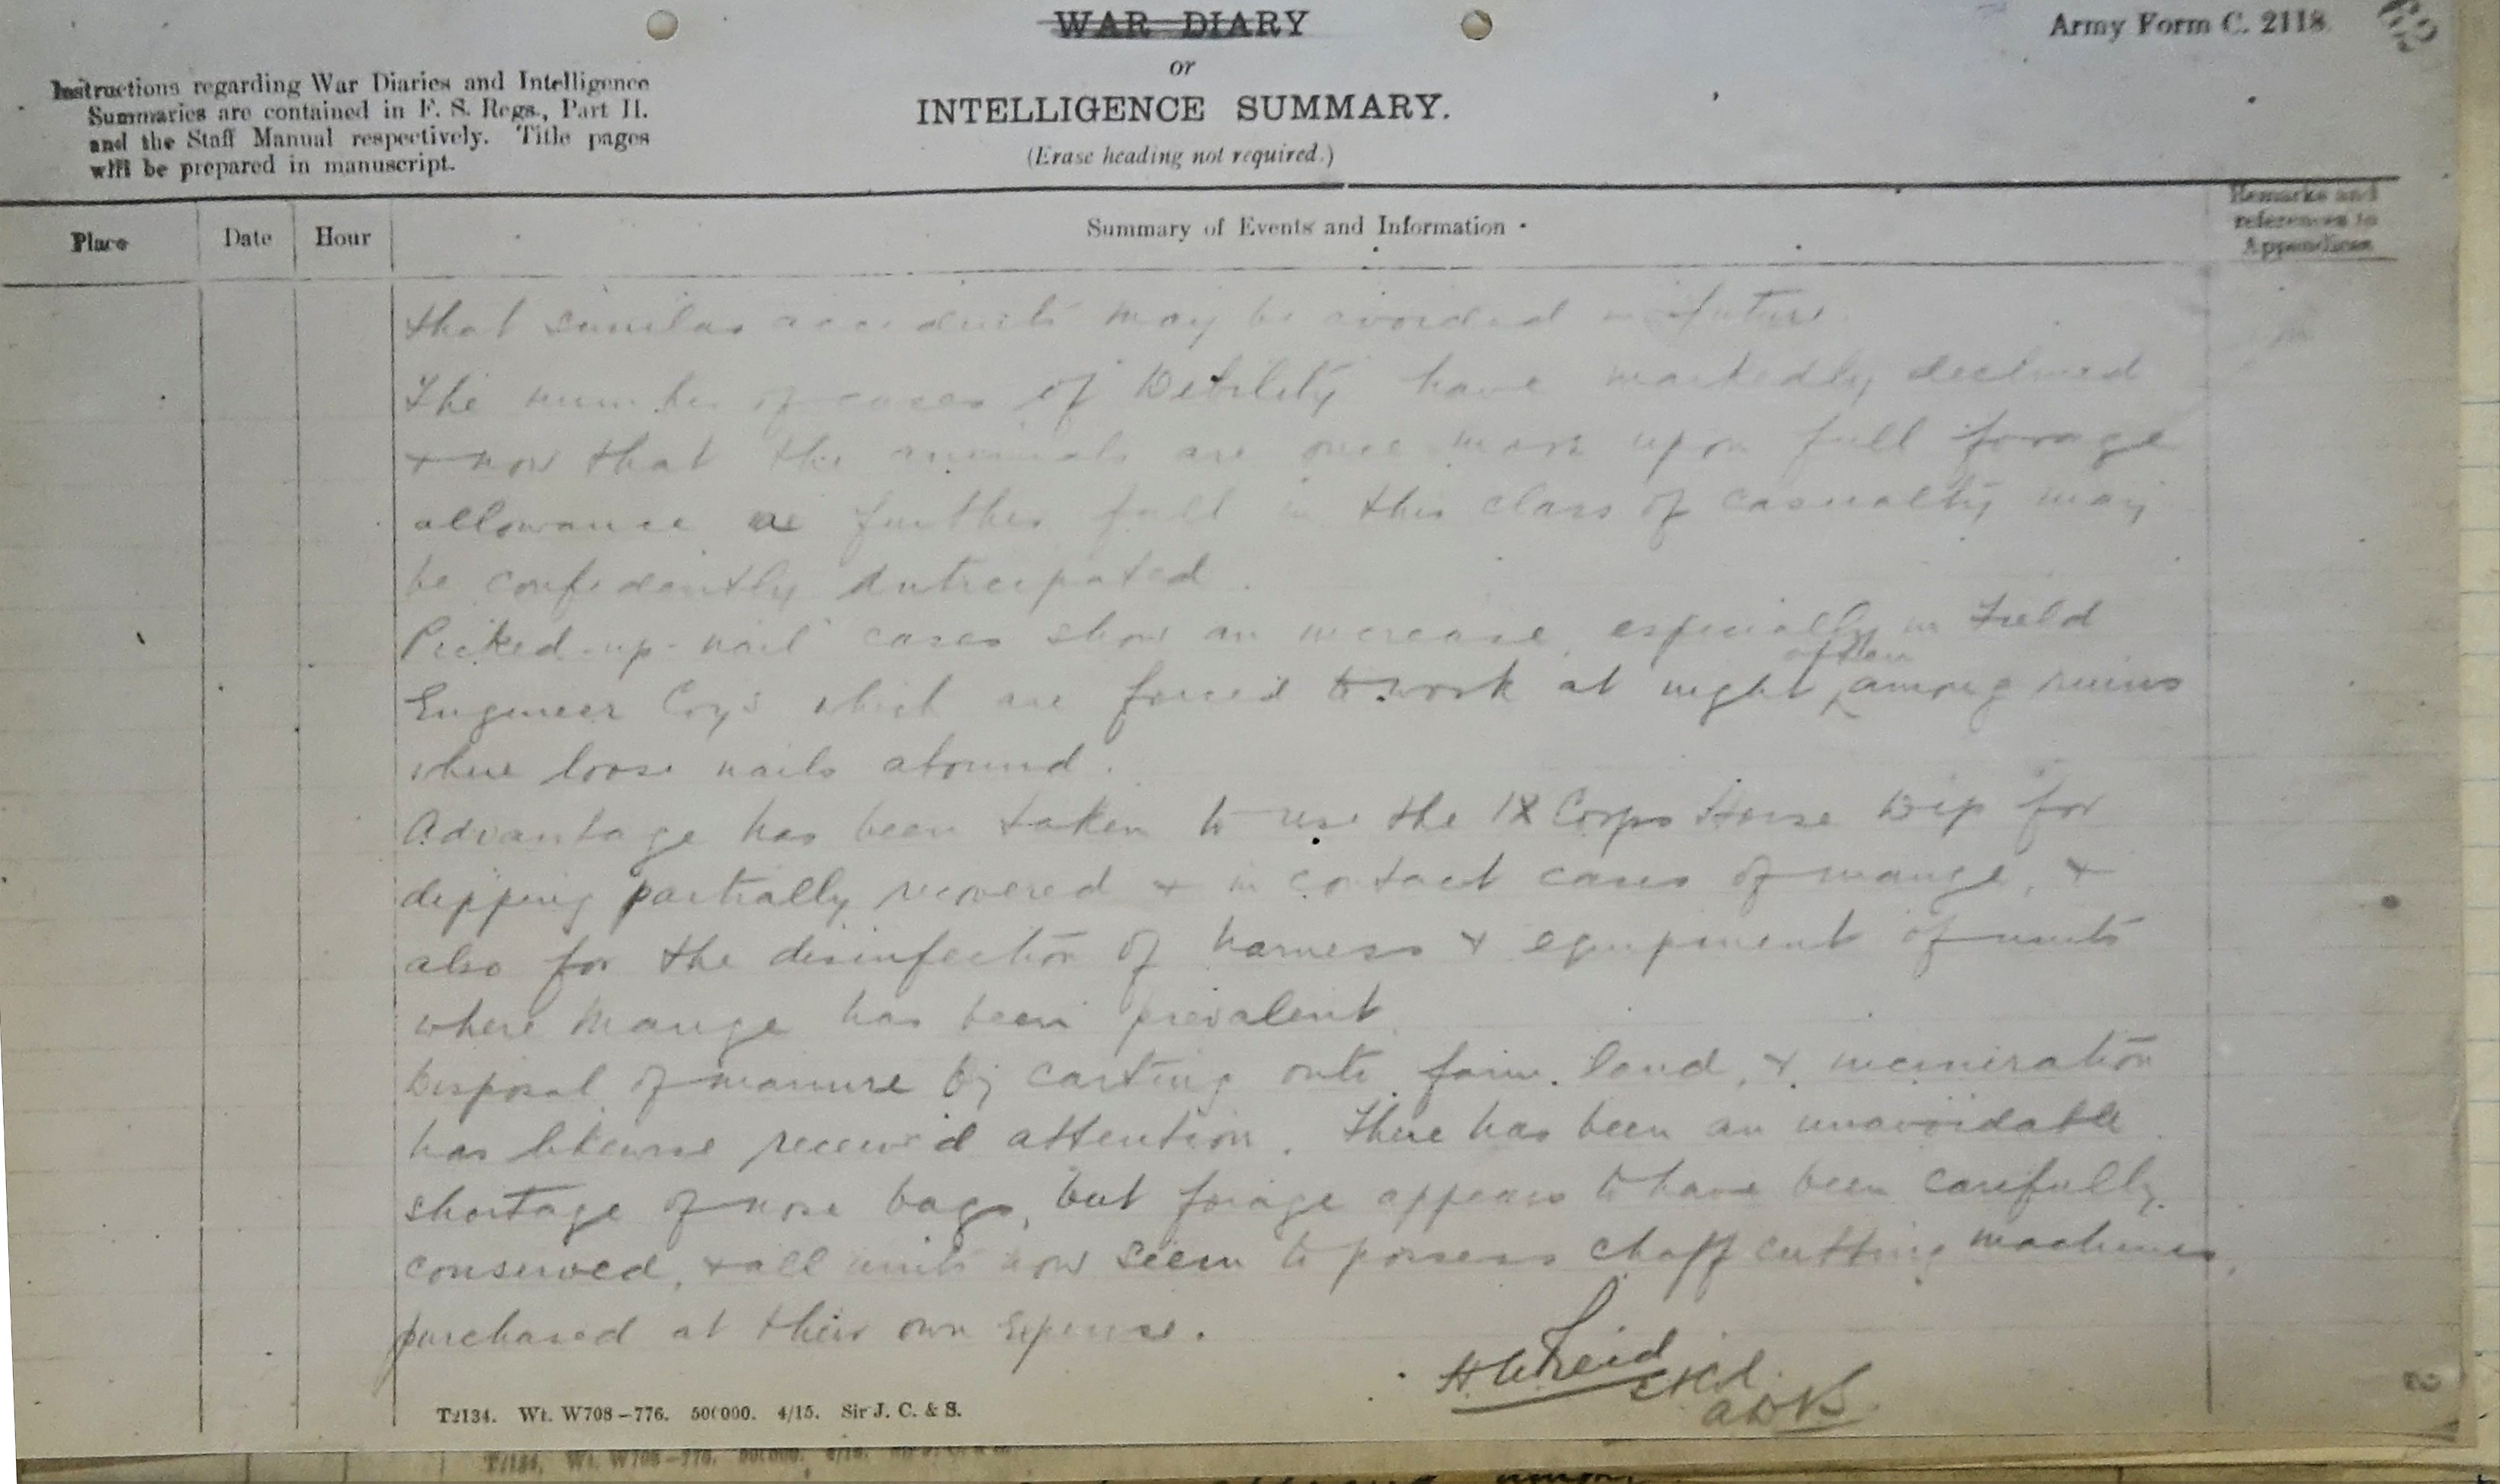 WAR DIARY
or
INTELLIGENCE SUMMARY.
(Erase heading not required.)
Army Form C. 2118.
Instructions regarding War Diaries and Intelligence
Summaries are contained in F. S. Regs., Part II.
and the Staff Manual respectively. Title pages
will be prepared in manuscript.
Place
Date
Hour
Summary of Events and Information
Remarks and
references to
Appendices
that similar accidents may be avoided in future.
The number of cases of Debility have markedly declined
& now that the animals are once more upon full forage
allowance a further fall in this class of casualty may
be confidently anticipated.
Picked-up-nail cases show an increase, especially in Field
Engineer Coys which are forced to work at night often among ruins
where loose nails abound.
Advantage has been taken to use the IX Corps Horse Dip for
dipping partially recovered & in contact cases of mange, &
also for the disinfection of harness & equipment of units
where Mange has been prevalent.
Disposal of manure by carting onto farm land, & incineration
has likewise received attention. There has been an unavoidable
shortage of nose bags, but forage appears to have been carefully
conserved, & all units now seem to possess chaff cutting machines,
purchased at their own expense.
Reid
ADVS
T2134. Wt. W708-776. 500000. 4/15. Sir J. C. & S.